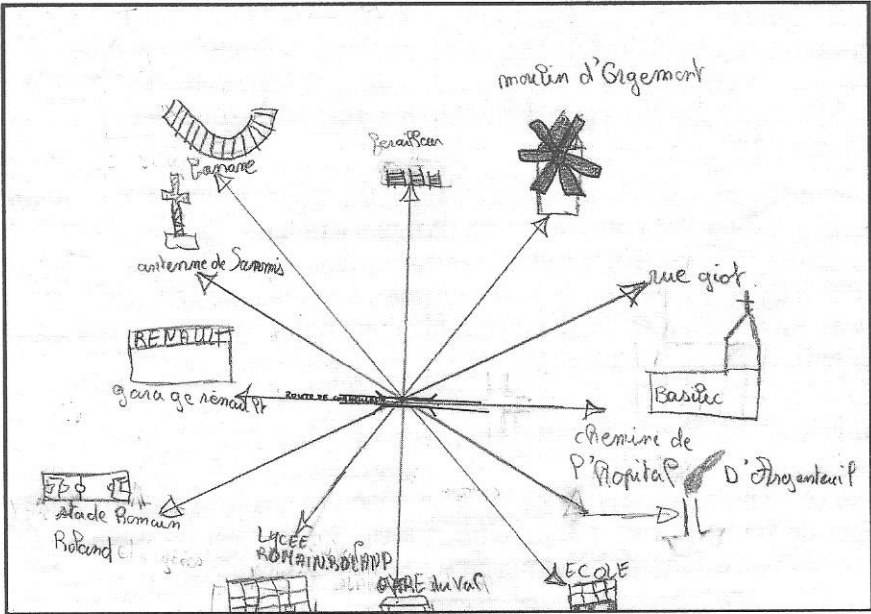 moulin d'Orgemont
ferailleur
banane
antenne de Sannois
rue giot
RENAULT
garage renault
ROUTE DE
Basilic
chemine de
l'hopital D'Argenteuil
stade Romain
Roland
LYCEE
ROMAIN ROLAND
GARE du Val
ECOLE